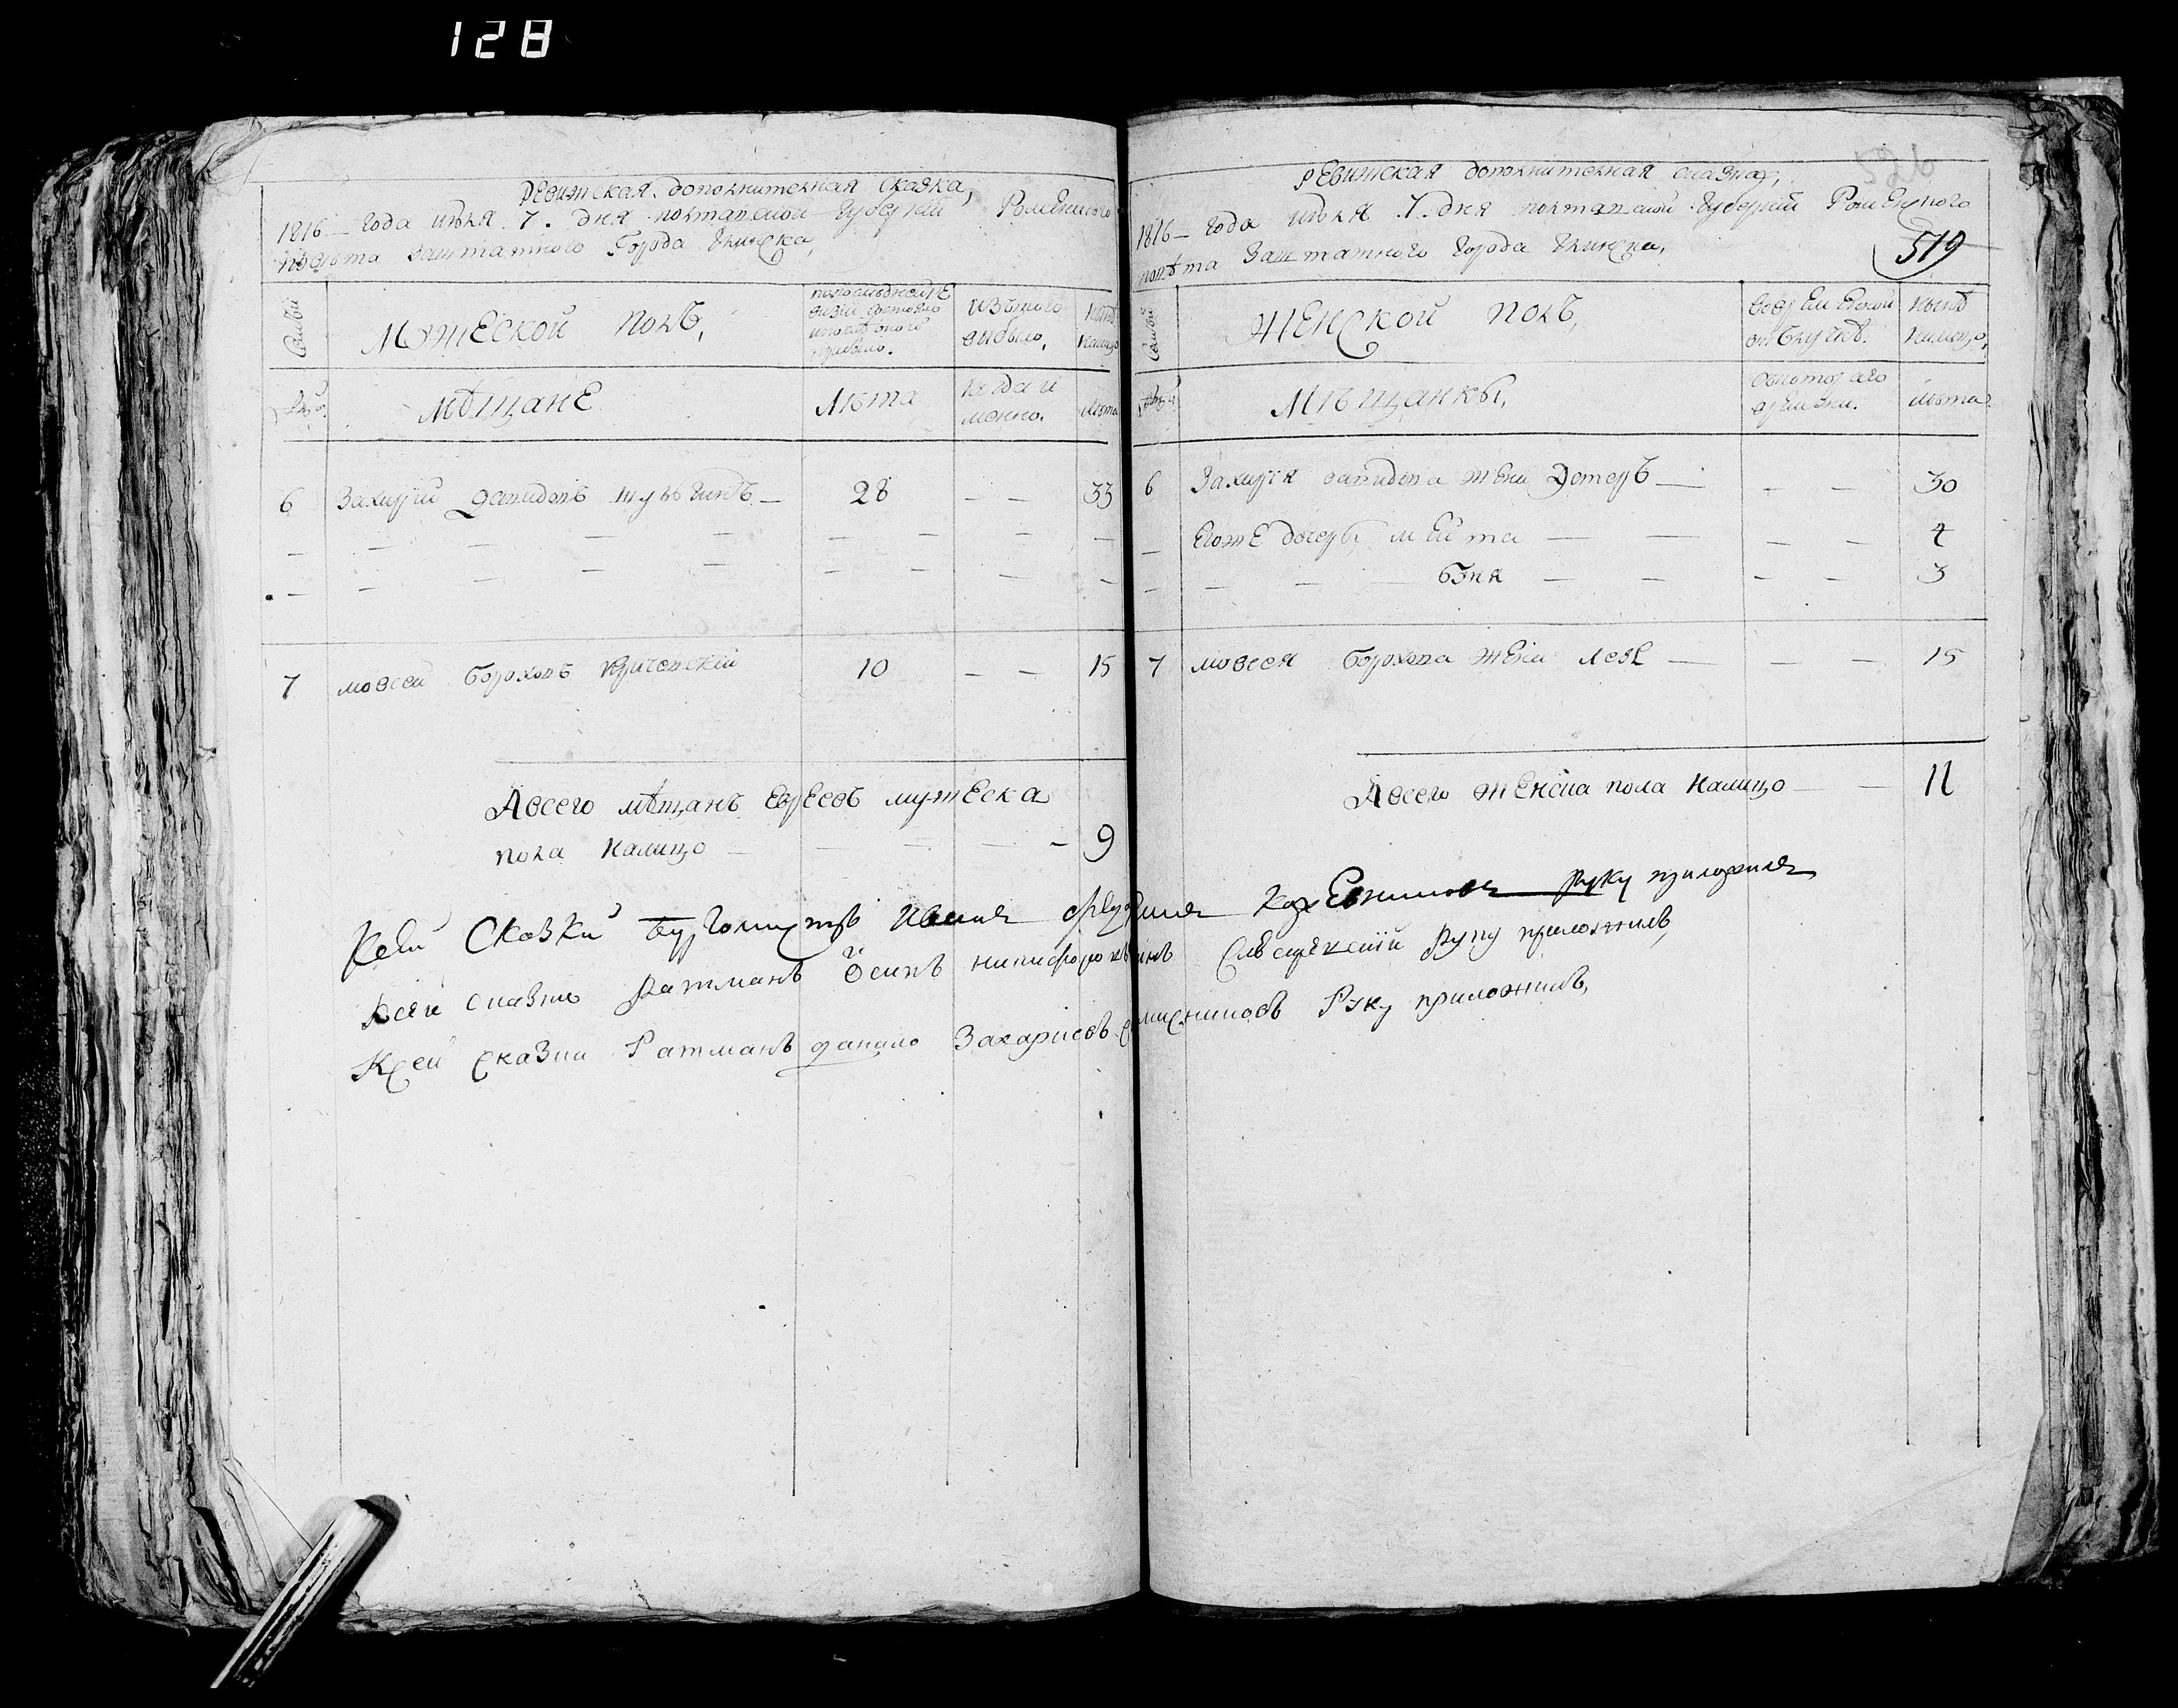 128
Ревижская дополнителная сказка,
1816 – Года июля 7. дня полтавской Губернии Роменского
повѣта заштатного Города Глинска,
Семьи
Мужеской полъ,
По последней ре
визии состояло
и после оного
прибыло.
Изътого
выбыло,
Нынѣ
налицо
мѣщане
Лѣта
Когда и
менно.
Лѣта
6 Захарий давидовъ 28 – – 33
7 мовсей Борховъ Кричевский 10 – – 15
Авсего мѣщанъ евреевъ мужеска
пола налицо – – – – 9
526
Ревижская дополнителная сказка,
1816 – Года июля 7. дня полтавской Губернии Роменского
повѣта Заштатного Города Глинска,
519
Семьи
Женской полъ,
Вовременной
отлучке.
Нынѣ
налицо,
Мѣщанки,
Скоторого
времяни.
Лѣта
6 Захария давидова жена Эстеръ – – – 30
Егоже дочеръ мейта – – – – 4
– – – бэня – – – – 3
7 мовсея борхова жена лея – – – 15
Авсего женска пола налицо – – 11
Ксей Сказки бургомистръ Иванъ руку приложилъ
Ксей сказки Ратманъ Осипъ руку приложилъ,
Ксей сказки Ратманъ данило Захариевъ Руку приложилъ,